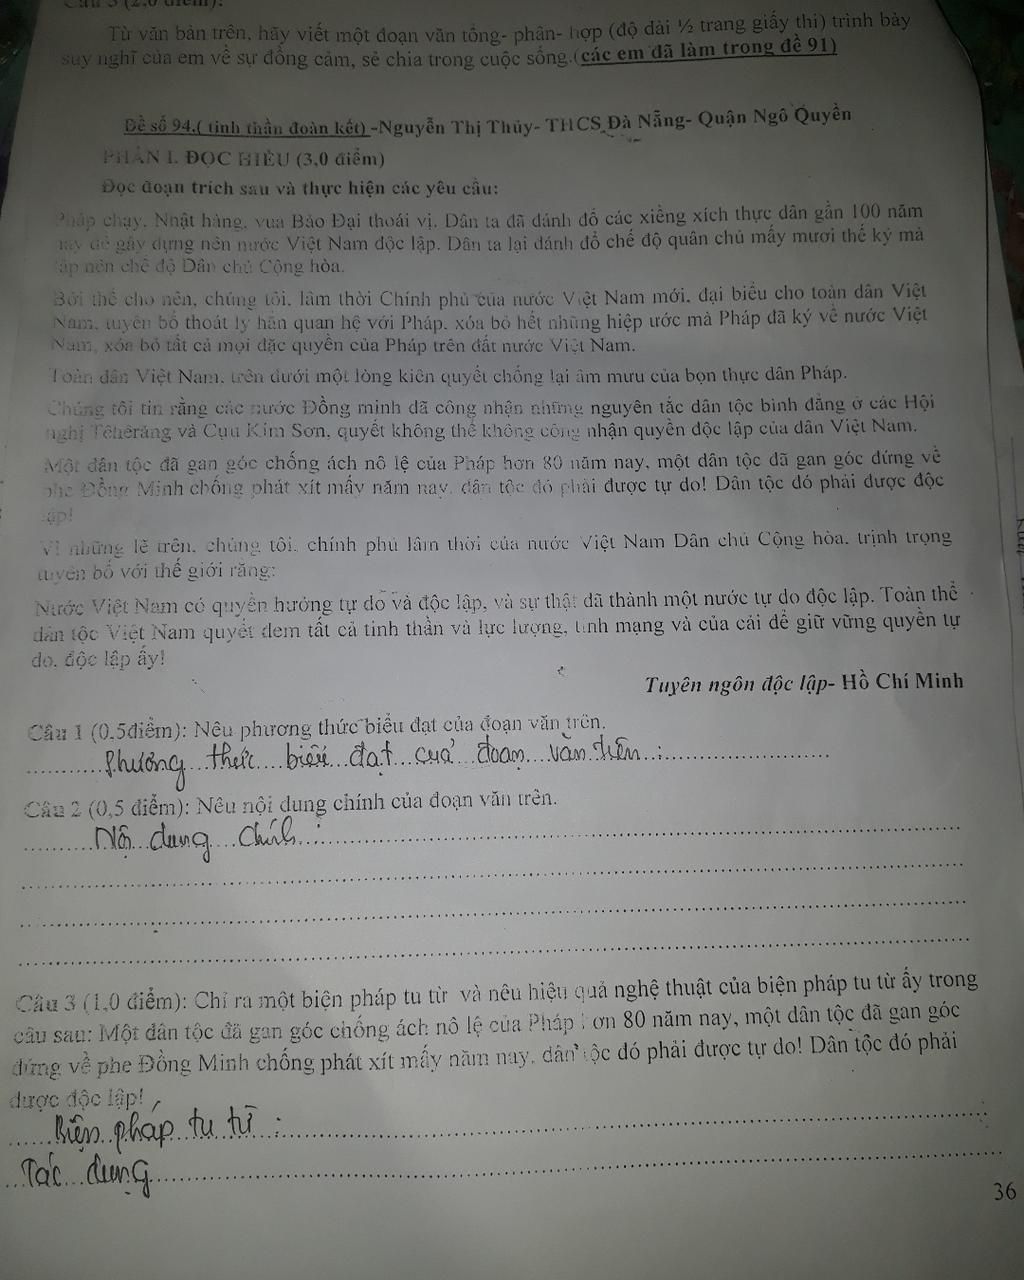 Câu 3 (2,0 điểm):
Từ văn bản trên, hãy viết một đoạn văn tổng- phân- hợp (độ dài ½ trang giấy thi) trình bày
suy nghĩ của em về sự đồng cảm, sẻ chia trong cuộc sống.(các em đã làm trong đề 91)
Đề số 94.( tinh thần đoàn kết) -Nguyễn Thị Thủy- THCS Đà Nẵng- Quận Ngô Quyền
PHẦN I. ĐỌC HIỂU (3,0 điểm)
Đọc đoạn trích sau và thực hiện các yêu cầu:
Pháp chạy, Nhật hàng, vua Bảo Đại thoái vị. Dân ta đã đánh đổ các xiềng xích thực dân gần 100 năm
nay để gây dựng nên nước Việt Nam độc lập. Dân ta lại đánh đổ chế độ quân chủ mấy mươi thế kỷ mà
lập nên chế độ Dân chủ Cộng hòa.
Bởi thế cho nên, chúng tôi, lâm thời Chính phủ của nước Việt Nam mới, đại biểu cho toàn dân Việt
Nam, tuyên bố thoát ly hẳn quan hệ với Pháp, xóa bỏ hết những hiệp ước mà Pháp đã ký về nước Việt
Nam, xóa bỏ tất cả mọi đặc quyền của Pháp trên đất nước Việt Nam.
Toàn dân Việt Nam, trên dưới một lòng kiên quyết chống lại âm mưu của bọn thực dân Pháp.
Chúng tôi tin rằng các nước Đồng minh đã công nhận những nguyên tắc dân tộc bình đẳng ở các Hội
nghị Têhêrăng và Cựu Kim Sơn, quyết không thể không công nhận quyền độc lập của dân Việt Nam.
Một dân tộc đã gan góc chống ách nô lệ của Pháp hơn 80 năm nay, một dân tộc đã gan góc đứng về
phe Đồng Minh chống phát xít mấy năm nay, dân tộc đó phải được tự do! Dân tộc đó phải được độc
lập!
Vì những lẽ trên, chúng tôi, chính phủ lâm thời của nước Việt Nam Dân chủ Cộng hòa, trịnh trọng
tuyên bố với thế giới rằng:
Nước Việt Nam có quyền hưởng tự do và độc lập, và sự thật đã thành một nước tự do độc lập. Toàn thể
dân tộc Việt Nam quyết đem tất cả tinh thần và lực lượng, tính mạng và của cải để giữ vững quyền tự
do, độc lập ấy!
Tuyên ngôn độc lập- Hồ Chí Minh
Câu 1 (0.5điểm): Nêu phương thức biểu đạt của đoạn văn trên.
Phương thức biểu đạt của đoạn văn trên :
Câu 2 (0,5 điểm): Nêu nội dung chính của đoạn văn trên.
Nội dung chính :
Câu 3 (1,0 điểm): Chỉ ra một biện pháp tu từ và nêu hiệu quả nghệ thuật của biện pháp tu từ ấy trong
câu sau: Một dân tộc đã gan góc chống ách nô lệ của Pháp hơn 80 năm nay, một dân tộc đã gan góc
đứng về phe Đồng Minh chống phát xít mấy năm nay, dân tộc đó phải được tự do! Dân tộc đó phải
được độc lập!
Biện pháp tu từ :
Tác dụng
36